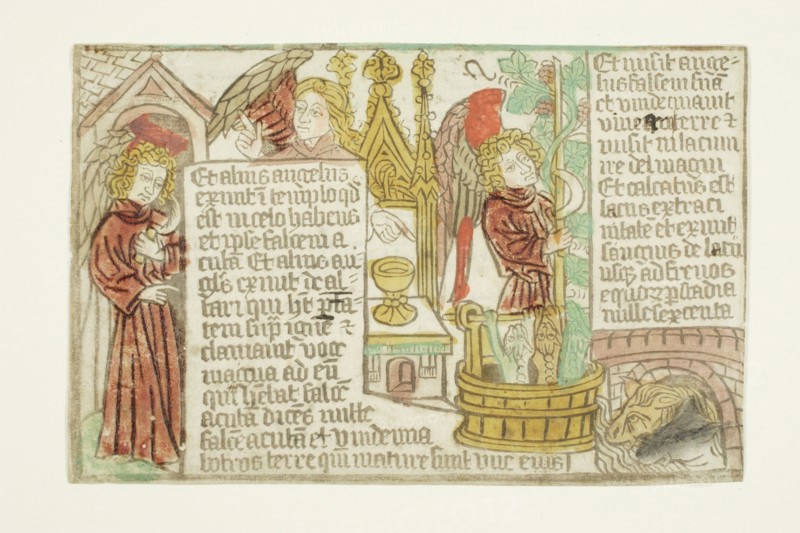 Et alius angelus
exivit ī templo qd̄
est in celo habens
et ipse falcem a
cutā Et alius an
gl's exivit de al
tari qui ht p̄tā
tem sup̄ igne ⁊
clamavit voce
magna ad eū
qui hēbat falcē
acutā dicēs mitte
falcē acutā et vindemia
botros terre qm̄ mature sunt vue eius
Et misit ange-
lus falcem suā
et vindemiavit
terre ⁊
misit in lacum
ire dei magni
Et calcatus est
lacus extra ci
vitatē et exivit
sanguis de lacu
usq; ad frenos
equoꝝ p stadia
mille sexcenta